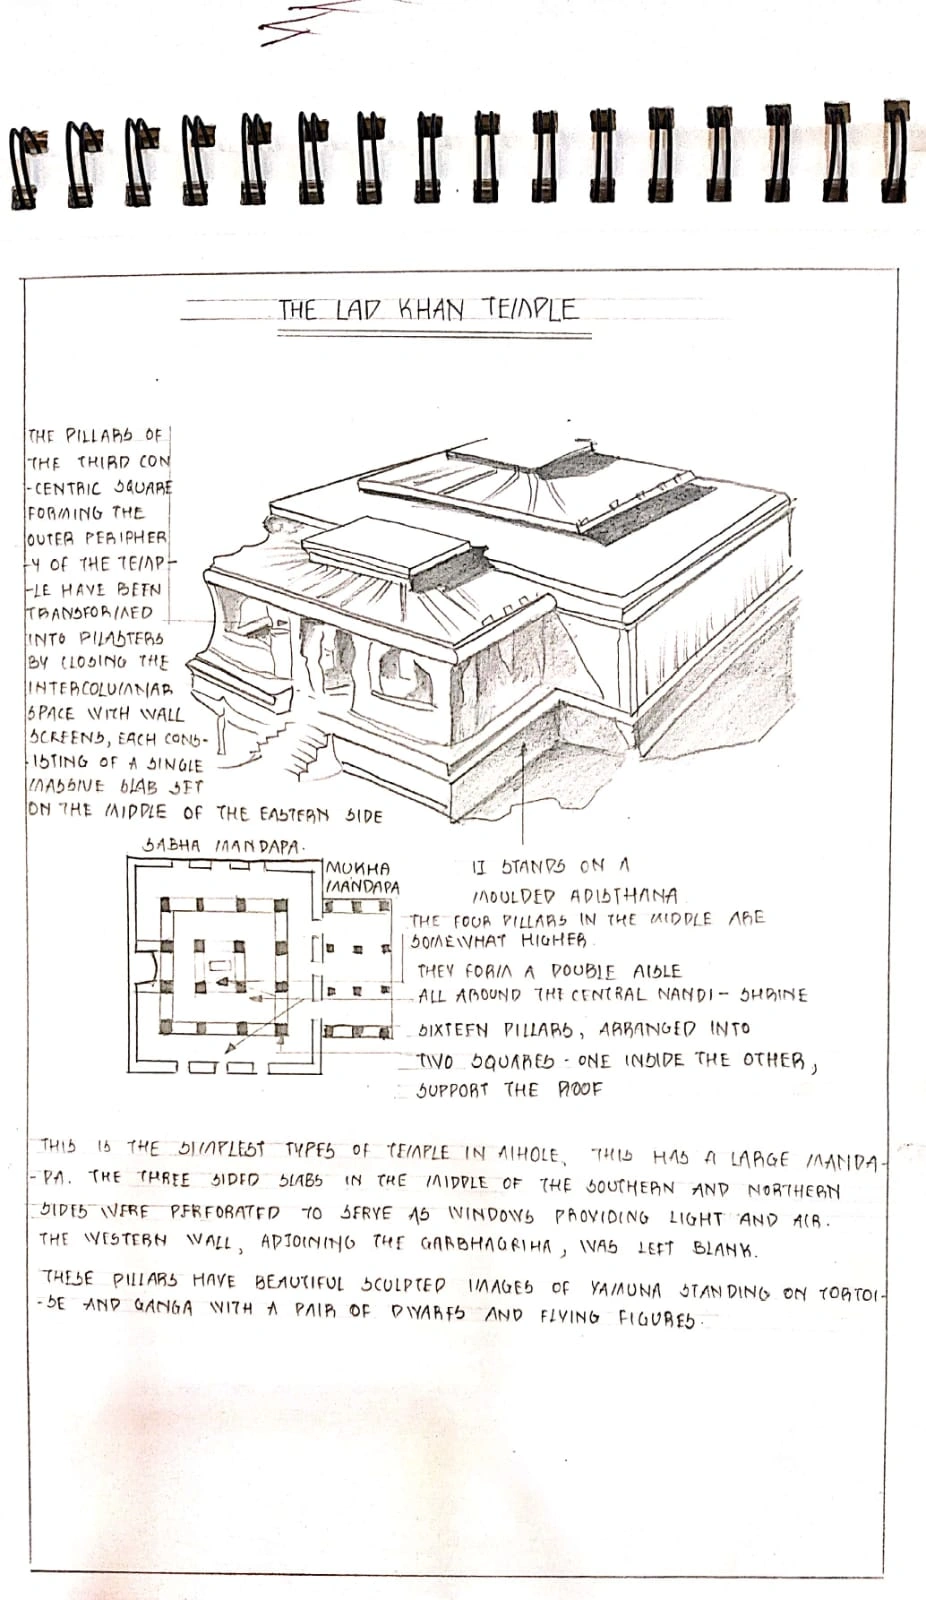 THE LAD KHAN TEMPLE
THE PILLARS OF
THE THIRD CON
-CENTRIC SQUARE
FORMING THE
OUTER PERIPHER
-Y OF THE TEMP-
-LE HAVE BEEN
TRANSFORMED
INTO PILASTERS
BY CLOSING THE
INTERCOLUMNAR
SPACE WITH WALL
SCREENS, EACH CONS-
-ISTING OF A SINGLE
MASSIVE SLAB SET
ON THE MIDDLE OF THE EASTERN SIDE
SABHA MANDAPA.
MUKHA
MANDAPA
IT STANDS ON A
MOULDED ADISTHANA
THE FOUR PILLARS IN THE MIDDLE ARE
SOMEWHAT HIGHER.
THEY FORM A DOUBLE AISLE
ALL AROUND THE CENTRAL NANDI - SHRINE
SIXTEEN PILLARS, ARRANGED INTO
TWO SQUARES - ONE INSIDE THE OTHER,
SUPPORT THE ROOF
THIS IS THE SIMPLEST TYPES OF TEMPLE IN AIHOLE, THIS HAS A LARGE MANDA-
-PA. THE THREE SIDED SLABS IN THE MIDDLE OF THE SOUTHERN AND NORTHERN
SIDES WERE PERFORATED TO SERVE AS WINDOWS PROVIDING LIGHT AND AIR.
THE WESTERN WALL, ADJOINING THE GARBHAGRIHA, WAS LEFT BLANK.
THESE PILLARS HAVE BEAUTIFUL SCULPTED IMAGES OF YAMUNA STANDING ON TORTOI-
-SE AND GANGA WITH A PAIR OF DWARFS AND FLYING FIGURES.